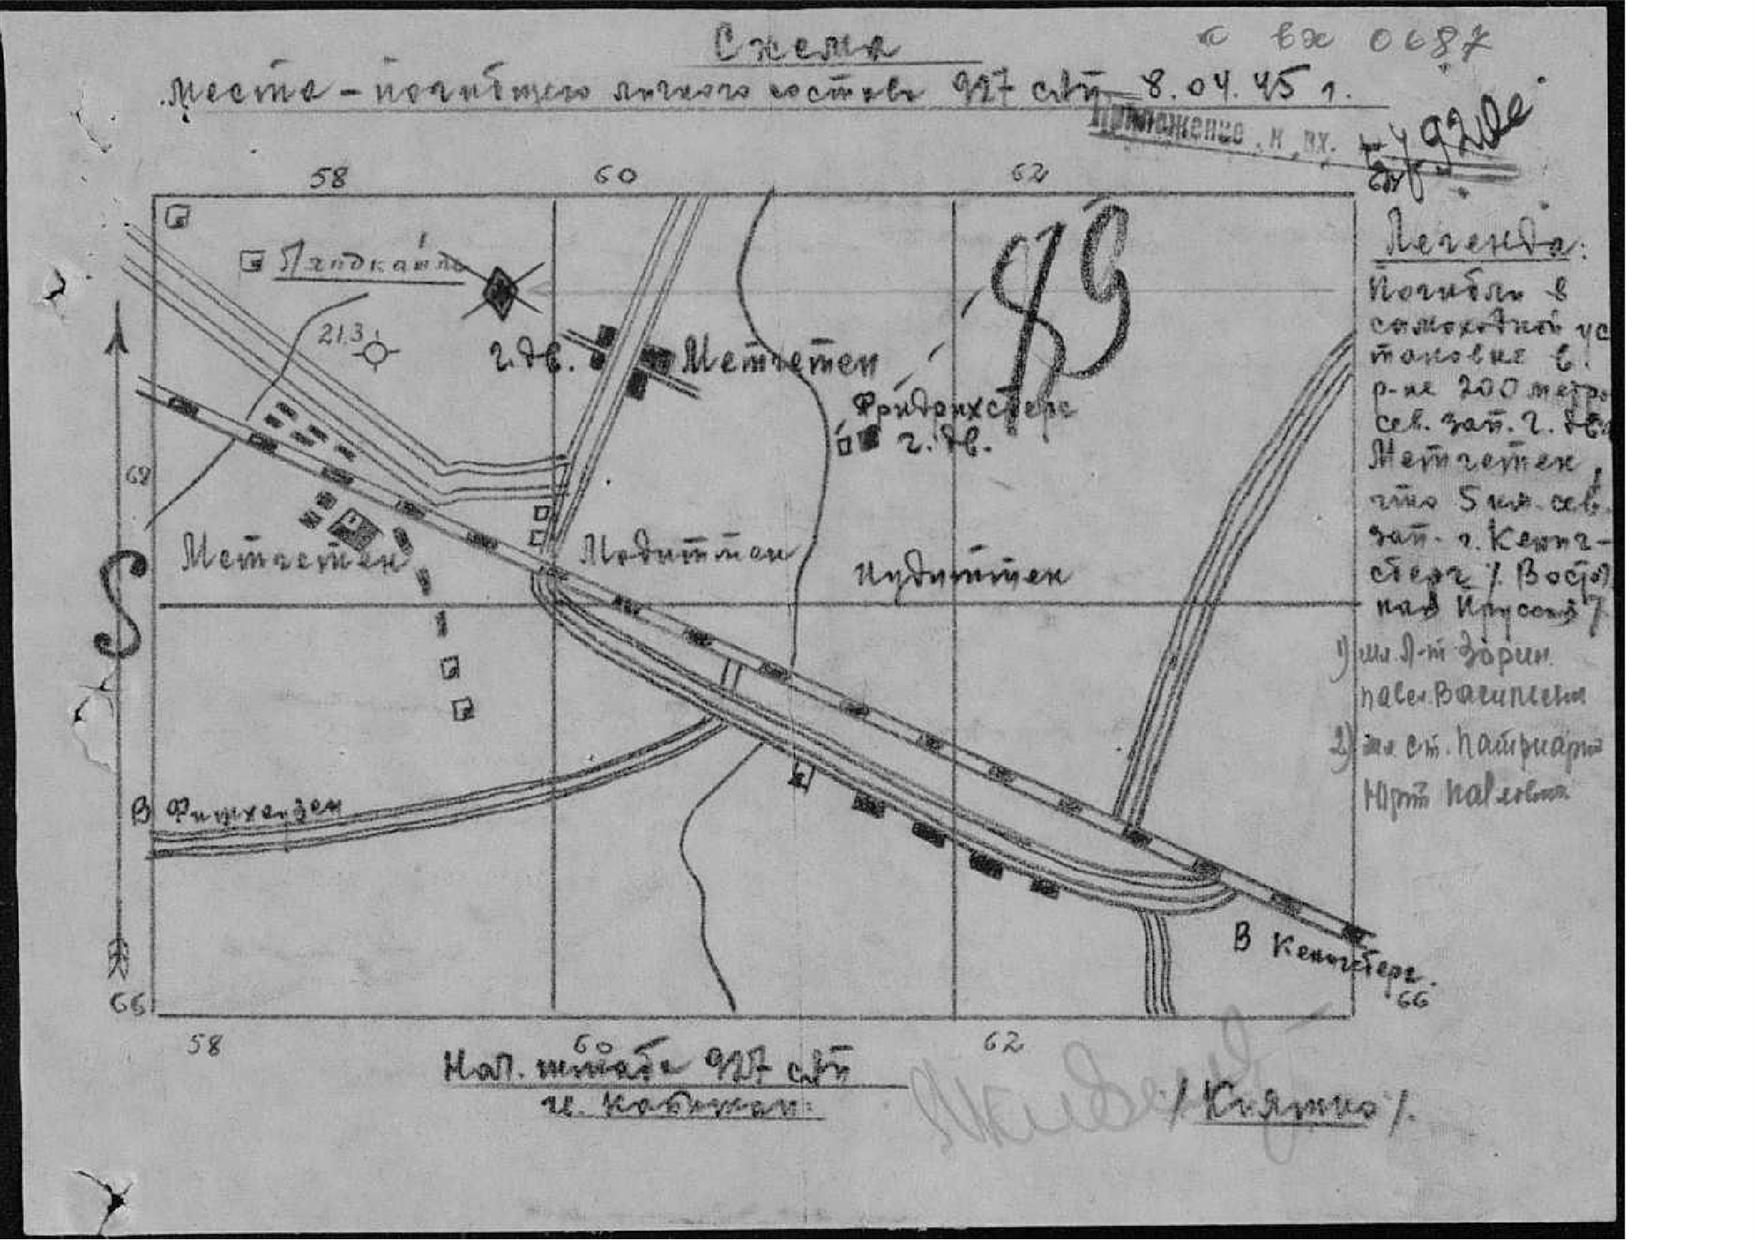 к вх 0687
Схема
места - погибшего личного состава 927 сап 8.04.45 г.
Приложение к вх.
4920с
58 60 62
Легенда:
Погибли в
самоходной ус
тановке в
р-не 200 метро
сев. зап. г. дв.
Метгетен,
что 5 км. сев.
зап. г. Кениг-
сберг /. Восто
ная Пруссия /.
1) мл. л-т Зорин
Павел Василье
2) мл. ст. Патриарх
Юрт Павлович
89
Ландкайм
21.3
г. дв.
Метгетен
Фридрихсберг
г. дв.
68
S
Метгетен
Модиттен
Иудиттен
В Фишхаузен
В Кенигсберг.
66
66
58 60 62
Нач. штаба 927 сап
гв. капитан:
/ Кияшко /.